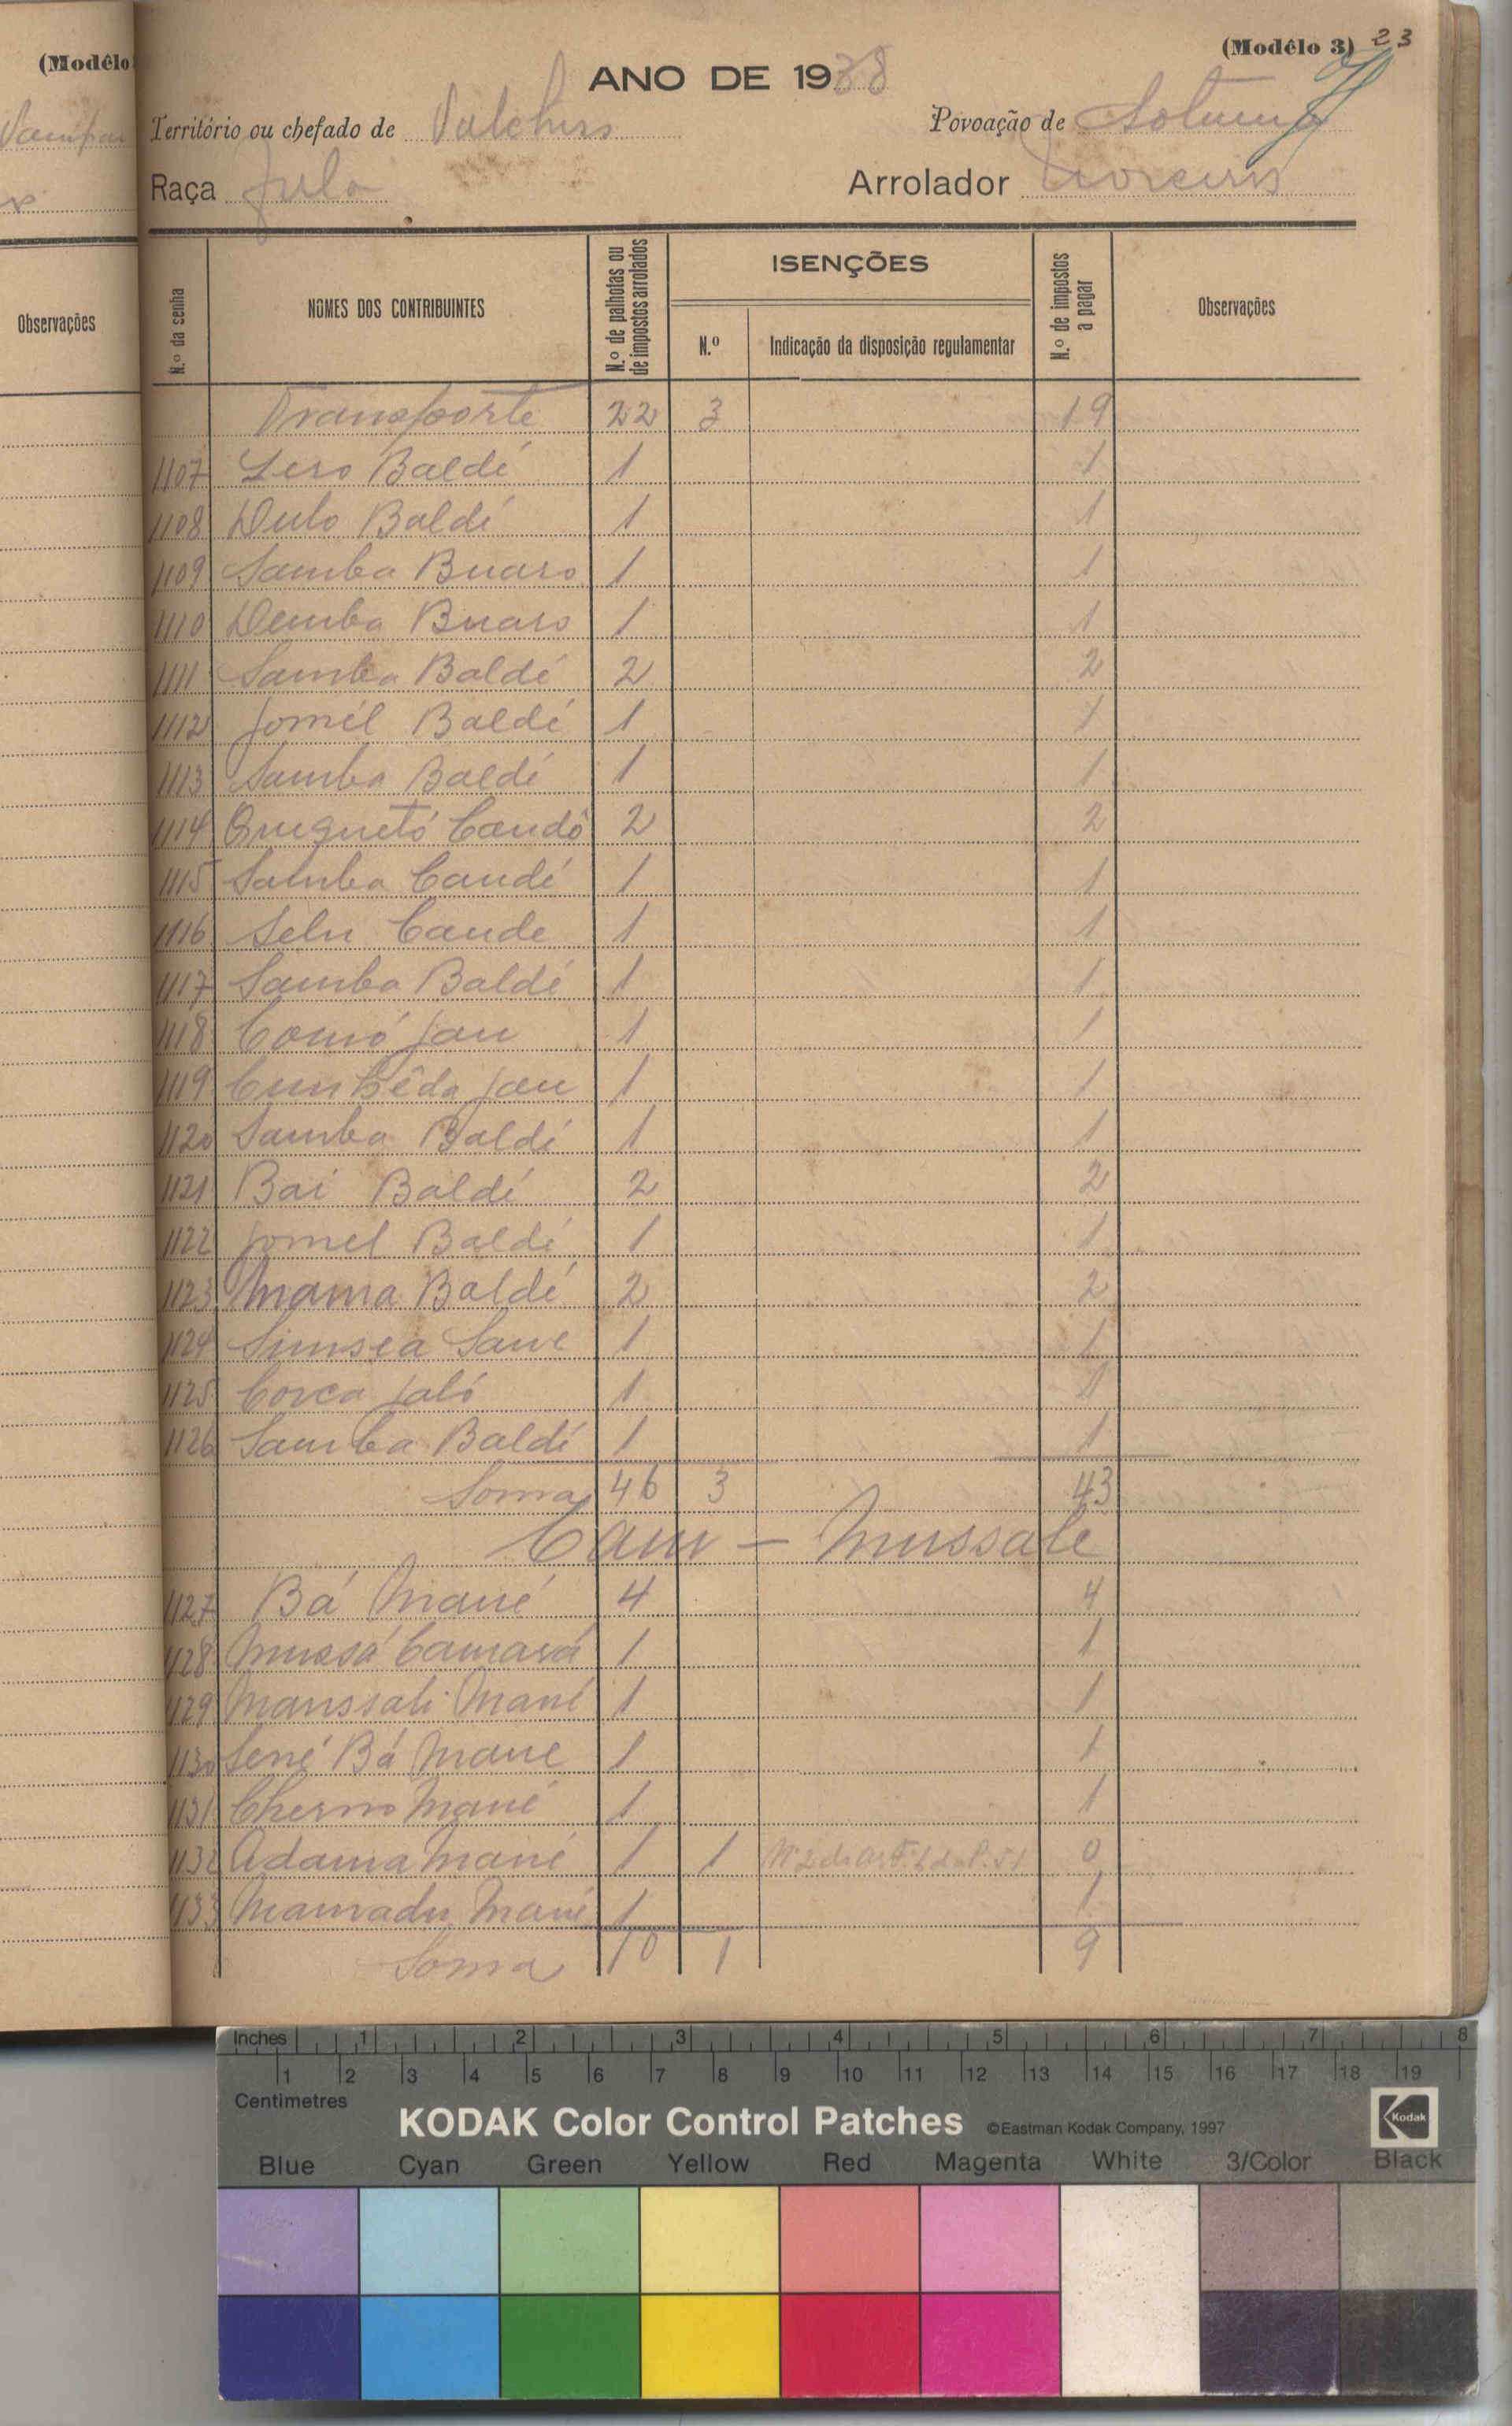 (Modêlo
Observações
(Modêlo 3) 23
ANO DE 1938
Território ou chefado de
Povoação de
Raça Fula
Arrolador Moreira
N.º da senha
NOMES DOS CONTRIBUINTES
N.º de palhotas ou de impostos arrolados
ISENÇÕES
N.º
Indicação da disposição regulamentar
N.º de impostos a pagar
Observações
Transporte 22 3 19
1107 Lero Baldé 1 1
1108 Dulo Baldé 1 1
1109 Samba Buaro 1 1
1110 Demba Buaro 1 1
1111 Samba Baldé 2 2
1112 Jomél Baldé 1 1
1113 Samba Baldé 1 1
1114 Quequetó Candé 2 2
1115 Samba Candé 1 1
1116 Selu Cande 1 1
1117 Samba Baldé 1 1
1118 Jau 1 1
1119 Jau 1 1
1120 Samba Baldé 1 1
1121 Bai Baldé 2 2
1122 Jomel Baldé 1 1
1123 Mama Baldé 2 2
1124 Sane 1 1
1125 Corca Jaló 1 1
1126 Samba Baldé 1 1
Soma 46 3 43
Cam – Mussale
1127 Bá Mané 4 4
1128 Mussá Camará 1 1
1129 Manssali Mané 1 1
1130 Sené Bá Mane 1 1
1131 Cherno Mané 1 1
1132 Adama Mané 1 1 0
1133 Mamadu Mané 1 1
Soma 10 1 9
Inches 1 2 3 4 5 6 7 8
1 2 3 4 5 6 7 8 9 10 11 12 13 14 15 16 17 18 19
Centimetres
KODAK Color Control Patches ©Eastman Kodak Company, 1997 Kodak
Blue Cyan Green Yellow Red Magenta White 3/Color Black